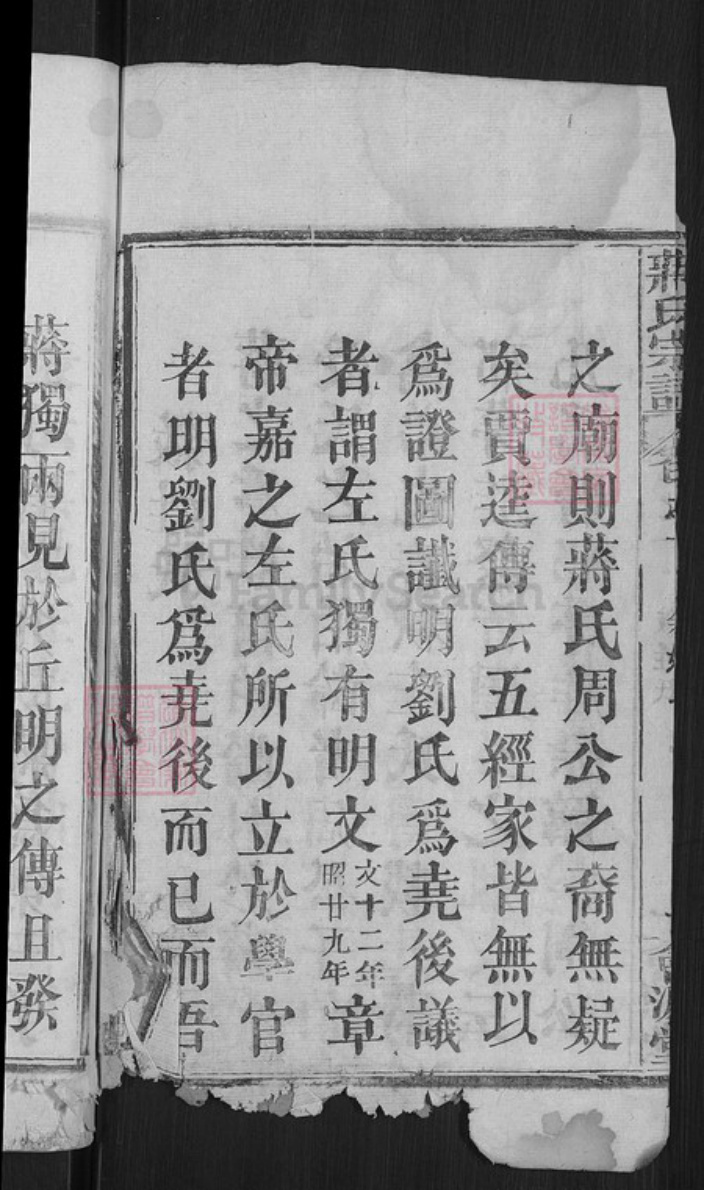 蔣氏宗譜
之廟則蔣氏周公之裔無疑
矣賈逵傳云五經家皆無以
爲證圖讖明劉氏爲堯後議
者謂左氏獨有明文文十二年昭廿九年章
帝嘉之左氏所以立於學官
者明劉氏爲堯後而已而吾
蔣獨兩見於丘明之傳且發
FamilySearch